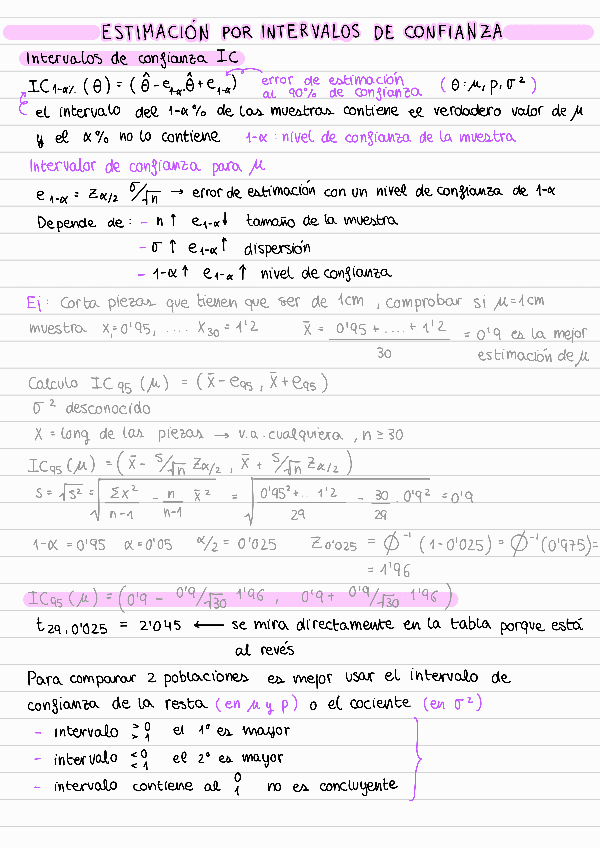 ESTIMACIÓN POR INTERVALOS DE CONFIANZA
Intervalos de confianza IC
IC₁₋α٪ (θ) = (θ̂ - e₁₋α, θ̂ + e₁₋α) error de estimación al 90% de confianza (θ: μ, p, σ²)
el intervalo del 1-α% de las muestras contiene el verdadero valor de μ
y el α% no lo contiene 1-α: nivel de confianza de la muestra
Intervalor de confianza para μ
e₁₋α = Zα/₂ σ/√n → error de estimación con un nivel de confianza de 1-α
Depende de: - n↑ e₁₋α↓ tamaño de la muestra
- σ↑ e₁₋α↑ dispersión
- 1-α↑ e₁₋α↑ nivel de confianza
Ej: Corta piezas que tienen que ser de 1cm, comprobar si μ=1cm
muestra x₁=0'95, .... x₃₀=1'2 x̄ = 0'95 + .... + 1'2 / 30 = 0'9 es la mejor estimación de μ
Calculo IC₉₅ (μ) = (x̄ - e₉₅, x̄ + e₉₅)
σ² desconocido
X = long de las piezas → v.a. cualquiera, n ≥ 30
IC₉₅ (μ) = (x̄ - s/√n Zα/₂, x̄ + s/√n Zα/₂)
s = √s² = √(Σx²/n-1 - n/n-1 x̄²) = √(0'95²+.. 1'2/29 - 30/29 · 0'9²) = 0'9
1-α = 0'95 α = 0'05 α/2 = 0'025 Z₀'₀₂₅ = ϕ⁻¹ (1-0'025) = ϕ⁻¹ (0'975) =
= 1'96
IC₉₅ (μ) = (0'9 - 0'9/√30 1'96, 0'9 + 0'9/√30 1'96)
t₂₉,₀'₀₂₅ = 2'045 ← se mira directamente en la tabla porque está
al revés
Para comparar 2 poblaciones es mejor usar el intervalo de
confianza de la resta (en μ y p) o el cociente (en σ²)
- intervalo > 0 > 1 el 1º es mayor
- intervalo < 0 < 1 el 2º es mayor
- intervalo contiene al 0 1 no es concluyente